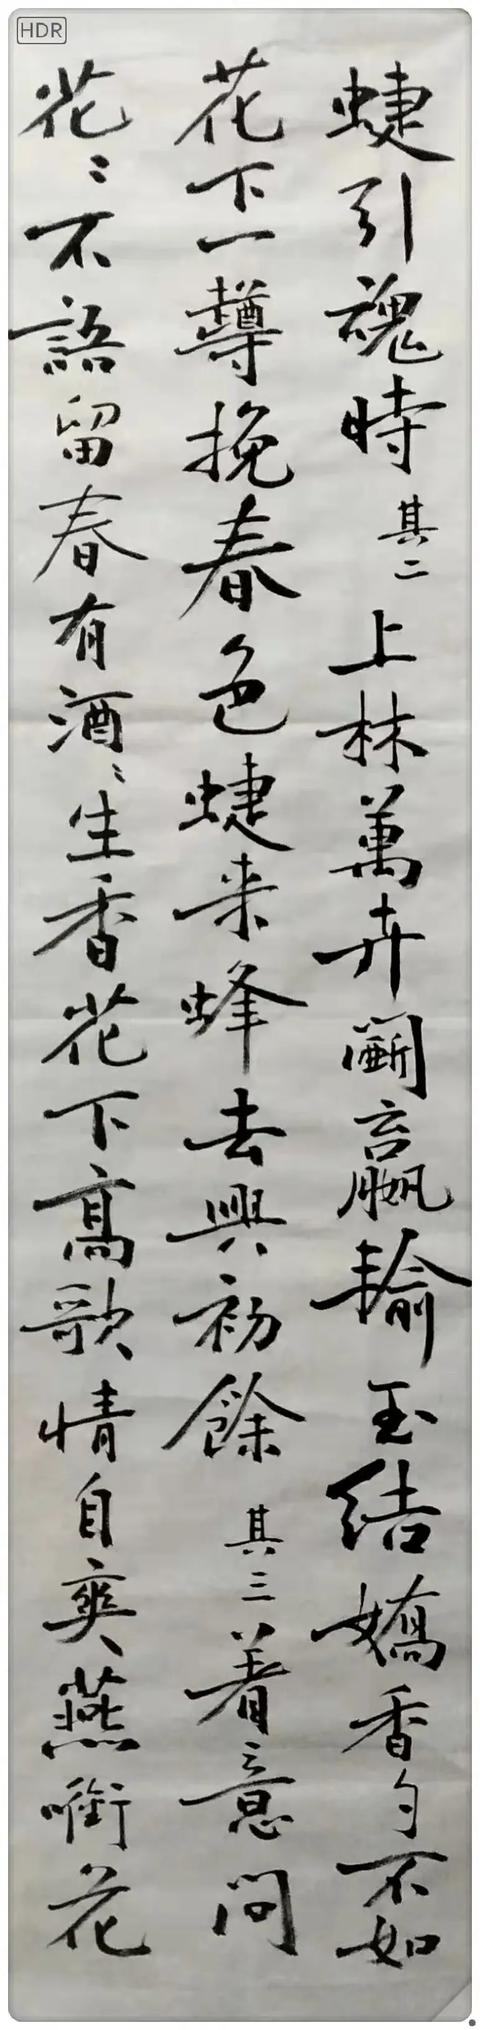 HDR
蜨引魂時其二上林萬卉鬭嬴輸玉結嬌香勻不如
花下一罇挽春色蜨来蜂去興初餘其三着意問
花〻不語留春有酒〻生香花下高歌情自爽燕啣花